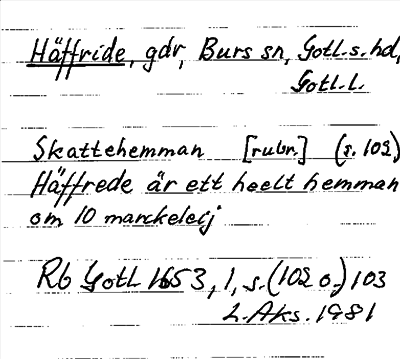 Häffride, gdr, Burs sn, Gotl. s. hd,
Gotl. l.
Skattehemman [rubr.] (s. 102)
Häffrede är ett heelt hemman
om 10 marckeleij
Rb Gotl 1653, 1, s. (102 o.) 103
L. Aks. 1981